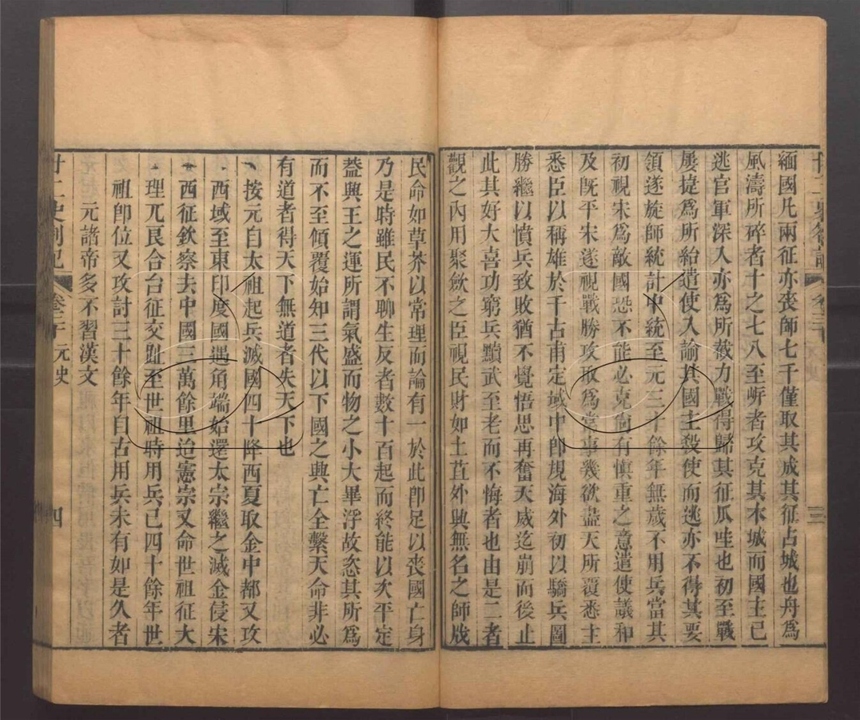 廿二史劄記 卷三十 元史 三
緬國凡兩征亦喪師七千僅取其成其征占城也舟爲
風濤所碎者十之七八至岸者攻克其木城而國主已
逃官軍深入亦爲所截力戰得歸其征爪哇也初至戰
屢捷爲所紿遣使入諭其國主殺使而逃亦不得其要
領遂旋師統計中統至元三十餘年無歲不用兵當其
初視宋爲敵國恐不能必克尙有慎重之意遣使議和
及旣平宋遂視戰勝攻取爲常事幾欲盡天所覆悉主
悉臣以稱雄於千古甫定域中卽規海外初以驕兵圖
勝繼以憤兵致敗猶不覺悟思再奮天威迄崩而後止
此其好大喜功窮兵黷武至老而不悔者也由是二者
觀之內用聚斂之臣視民財如土苴外興無名之師戕
民命如草芥以常理而論有一於此卽足以喪國亡身
乃是時雖民不聊生反者數十百起而終能以次平定
蓋興王之運所謂氣盛而物之小大畢浮故恣其所爲
而不至傾覆始知三代以下國之興亡全繫天命非必
有道者得天下無道者失天下也
按元自太祖起兵滅國四十降西夏取金中都又攻
西域至東印度國遇角端始還太宗繼之滅金侵宋
西征欽察去中國三萬餘里迨憲宗又命世祖征大
理兀良合台征交趾至世祖時用兵已四十餘年世
祖卽位又攻討三十餘年自古用兵未有如是久者
元諸帝多不習漢文
廿二史劄記 卷三十 元史 四